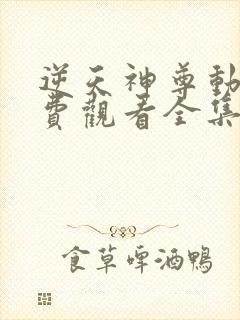 逆天神尊動
費觀看全集
食草啤酒鴨